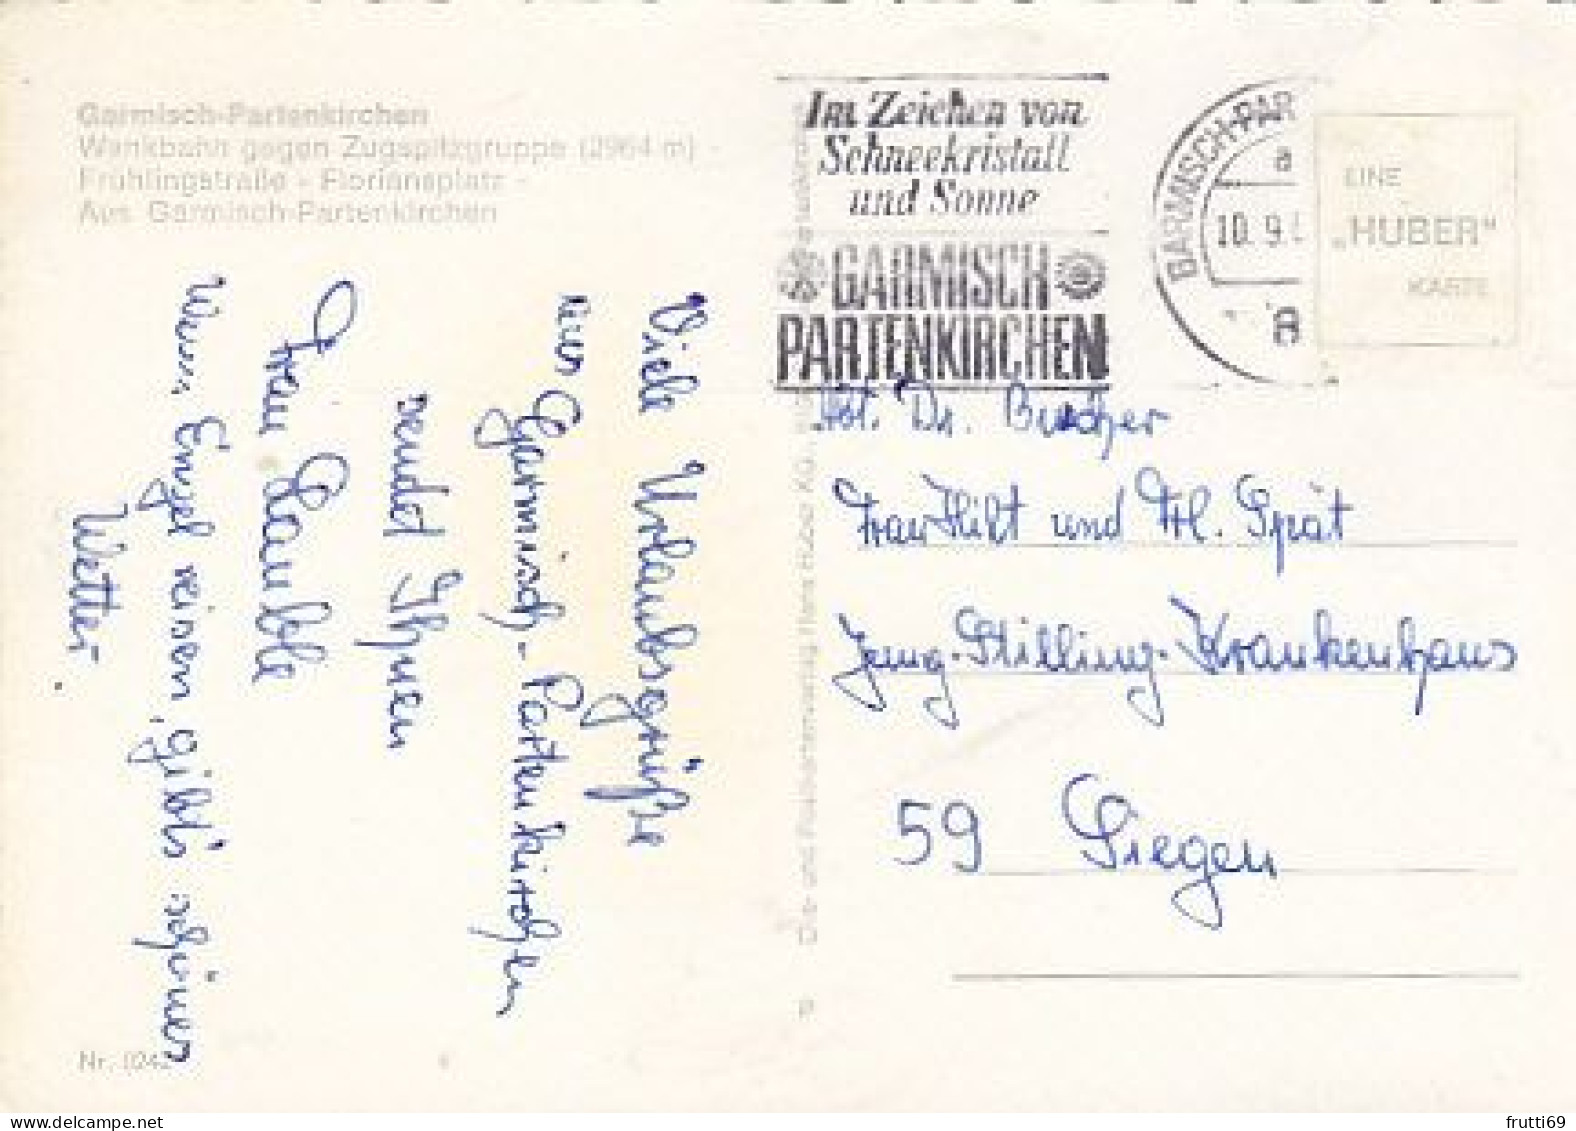 Garmisch-Partenkirchen
Wankbahn gegen Zugspitzgruppe (2964 m) -
Frühlingstraße - Floriansplatz -
Aus Garmisch-Partenkirchen
Viele Urlaubsgrüße
aus Garmisch-Partenkirchen
sendet Ihnen
Frau Läuble
Wenn Engel reisen, gibt's schönes
Wetter.
Nr.
Im Zeichen von
Schneekristall
und Sonne
GARMISCH
PARTENKIRCHEN
GARMISCH-PAR
a
10. 9.
EINE
„HUBER"
KARTE
Abt. Dr. Buscher
Frau Hilt und Frl. Spät
Jung-Stilling-Krankenhaus
59 Siegen
und Postkartenverlag Hans Huber KG.
frutti69